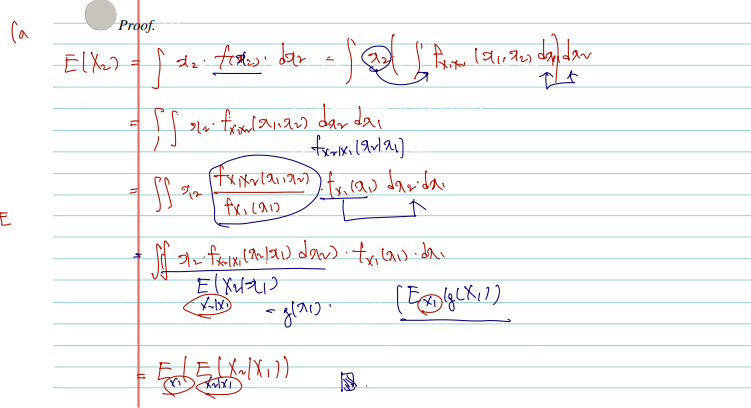 (a
Proof.
E(X₂) = ∫ x₂ · f(x₂) · dx₂ = ∫ x₂ ( ∫ f_{X₁X₂} (x₁, x₂) dx₁ ) dx₂
= ∫∫ x₂ · f_{X₁X₂} (x₁, x₂) dx₂ dx₁
f_{X₂|X₁} (x₂|x₁)
= ∫∫ x₂ f_{X₁X₂}(x₁, x₂) / f_{X₁}(x₁) · f_{X₁}(x₁) dx₂ · dx₁
E
= ∫(∫ x₂ · f_{X₂|X₁} (x₂|x₁) dx₂) · f_{X₁}(x₁) · dx₁
E_{X₂|X₁} (X₂|x₁) = g(x₁) · (E_{X₁} (g(X₁))
= E_{X₁} ( E_{X₂|X₁} (X₂|X₁))